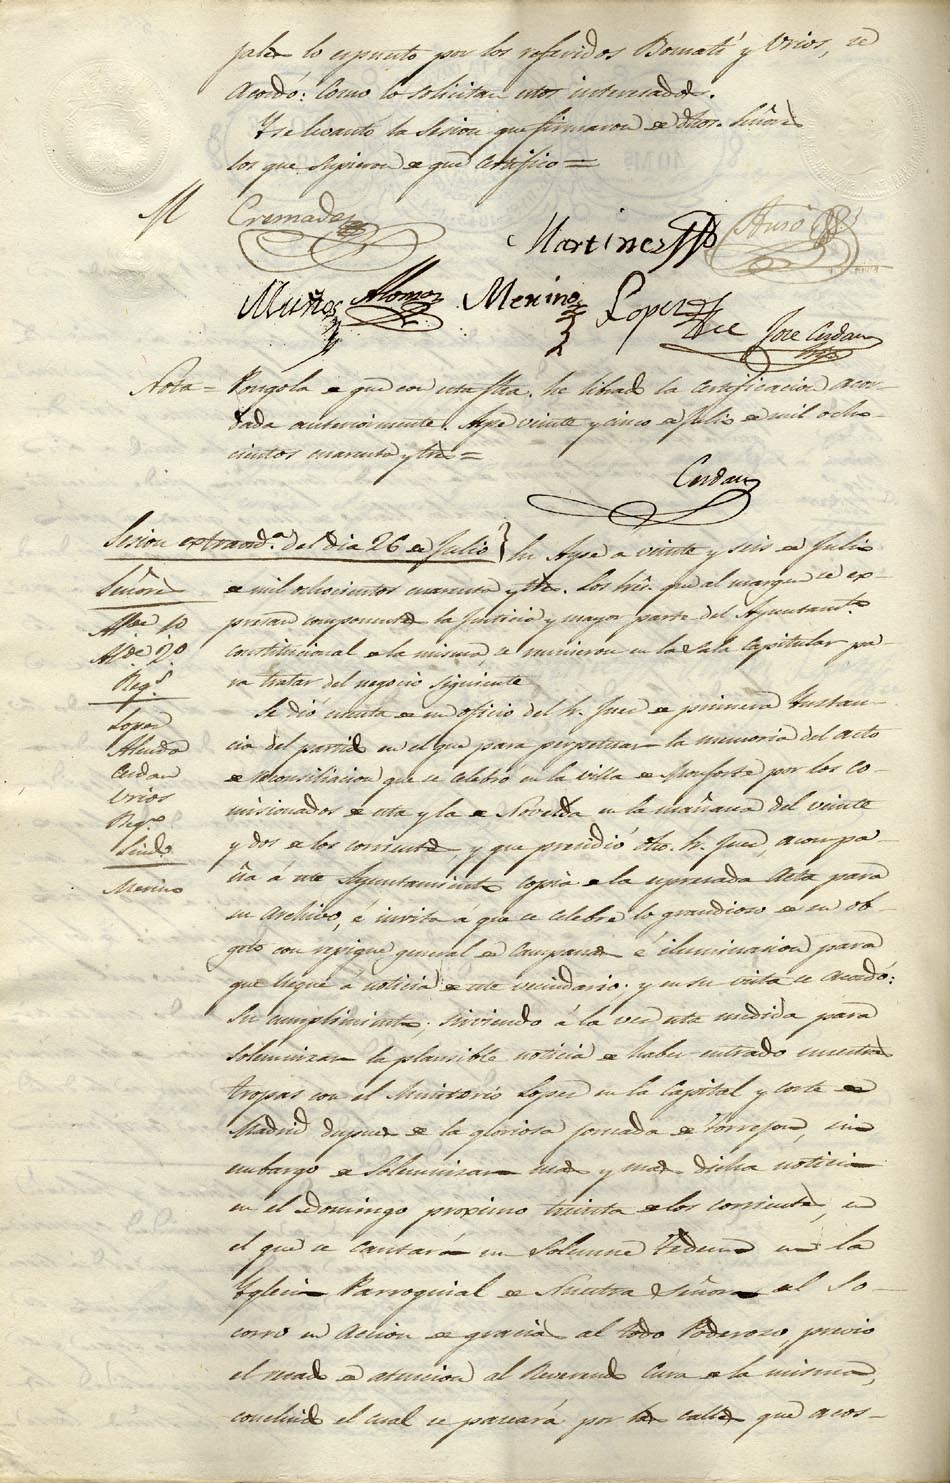 lo espuesto por los referidos Bomati y Urios, se
Acordó: Como lo solicitan estos interesados.
Y se levantó la Sesion que firmaron de dhos. Señores
los que supieron de que certifico =
M Cremades
Martinez
Muñoz Alomar Merino Lopez
Jose Cerdan
Nota = Pongola de que con esta fha. he librado la certificacion acor-
dada anteriormente. Aspe veinte y cinco de Julio de mil ocho-
cientos cuarenta y tres =
Cerdan
Sesion extraord.ª del dia 26 de Julio
Señores
Alde 1º
Alde 2º
Reg.s
Lopez
Almodo
Cerdan
Urios
Reg.r
Sindo
Merino
En Aspe a veinte y seis de Julio
de mil ochocientos cuarenta y tres. Los Sres. que al margen se ex-
presan componentes la Justicia y mayor parte del Ayuntam.to
constitucional de la misma, se reunieron en la Sala Capitular pa-
ra tratar del negocio siguiente
Se dió cuenta de un oficio del Sr. Juez de primera Instan-
cia del partido en el que para perpetuar la memoria del acto
de reconsiliacion que se celebró en la villa de Monforte por los Co-
misionados de esta y la de Novelda en la mañana del veinte
y dos de los corrientes, y que presidió dho. Sr. Juez, acompa-
ña á este Ayuntamiento copia de la espresada Acta para
su Archivo, é invita á que se celebre lo grandioso de su ob-
geto con repique general de Campanas é iluminacion para
que llegue á noticia de este vecindario; y en su vista se acordó:
Su cumplimiento, sirviendo á la vez esta medida para
solemnizar la plausible noticia de haber entrado nuestras
tropas con el Ministerio Lopez en la Capital y corte de
Madrid despues de la gloriosa jornada de Torrejon, sin
embargo de solemnizar mas y mas dicha noticia
en el Domingo proximo treinta de los corrientes, en
el que se cantará un Solemne Tedeum en la
Yglecia Parroquial de Nuestra Señora del So-
corro en Accion de gracias al todo Poderozo, previo
el recado de atencion al Reverendo Cura de la misma,
concluido el cual se paseará por las calles que acos-